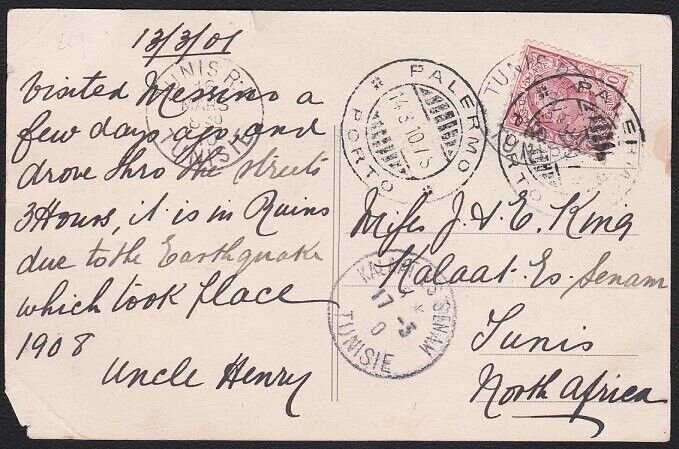 13/3/01
Visited Messina a
few days ago and
drove thro the streets
3 Hours, it is in Ruins
due to the Earthquake
which took place
1908
Uncle Henry
TUNIS R.P.
TUNISIE
PALERMO
14.3.10.7S
PORTO
PALERMO
PORTO
TUNIS
Misses J. & E. King
Kalaat-Es-Senam
Tunis
North Africa
KALAAT ES SENAM
17 -3
TUNISIE